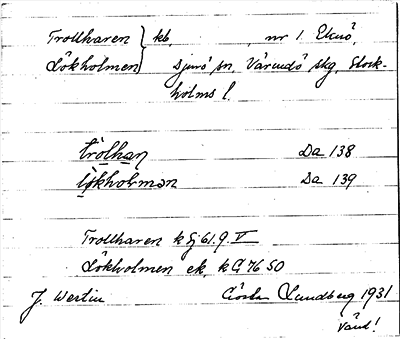 Trollharen } kb, , nr 1. Eknö,
Lökholmen } Djurö sn, Värmdö skg, Stock-
holms l.
trölhaṇ Da 138
lökholmən Da 139
Trollharen k Gj 61. 9. V
Lökholmen ek, k G 76 50
J. Westin Gösta Lundberg 1931
Värd!